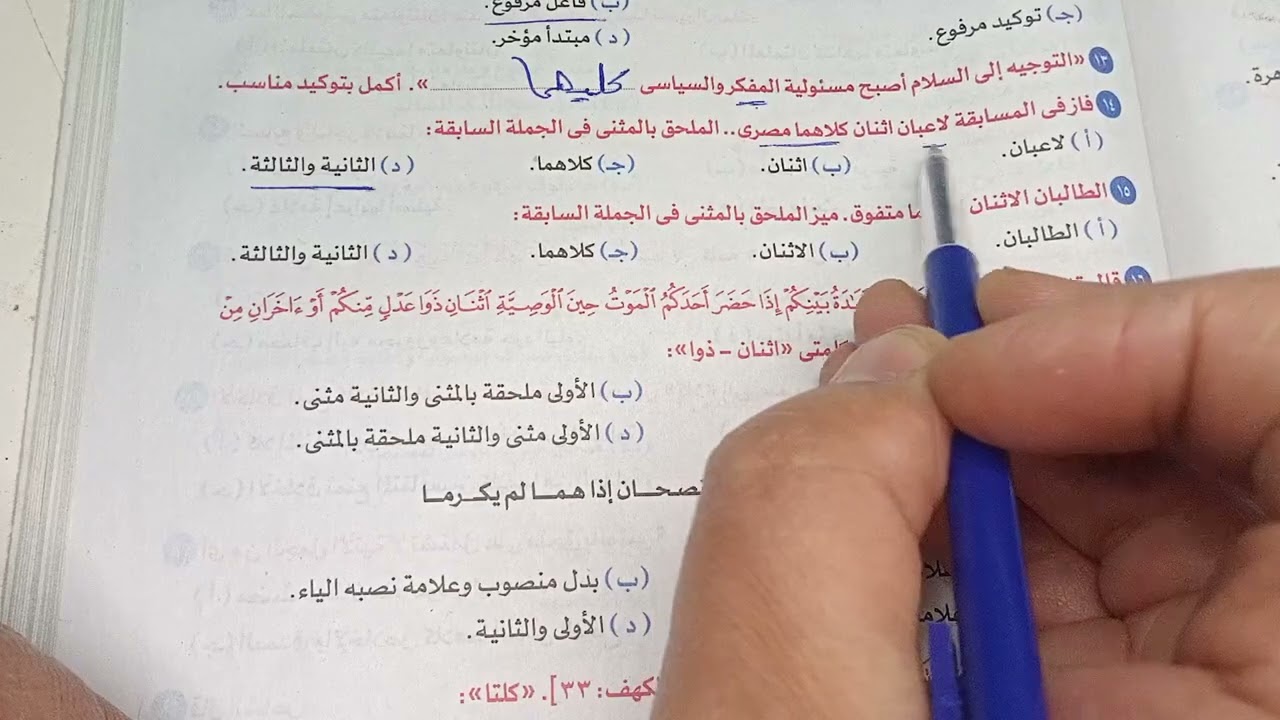 (ب) فاعل مرفوع.
(جـ) توكيد مرفوع.
(د) مبتدأ مؤخر.
١٣ «التوجيه إلى السلام أصبح مسئولية المفكر والسياسى كليهما». أكمل بتوكيد مناسب.
١٤ فاز فى المسابقة لاعبان اثنان كلاهما مصرى.. الملحق بالمثنى فى الجملة السابقة:
(أ) لاعبان. (ب) اثنان. (جـ) كلاهما. (د) الثانية والثالثة.
١٥ الطالبان الاثنان متفوق. ميز الملحق بالمثنى فى الجملة السابقة:
(أ) الطالبان. (ب) الاثنان. (جـ) كلاهما. (د) الثانية والثالثة.
١٦
بَيْنِكُمْ إِذَا حَضَرَ أَحَدَكُمُ الْمَوْتُ حِينَ الْوَصِيَّةِ اثْنَانِ ذَوَا عَدْلٍ مِّنكُمْ أَوْ ءَاخَرَانِ مِنْ
«اثنان - ذوا»:
(ب) الأولى ملحقة بالمثنى والثانية مثنى.
(د) الأولى مثنى والثانية ملحقة بالمثنى.
إذا هما لم يكرما
(ب) بدل منصوب وعلامة نصبه الياء.
(د) الأولى والثانية.
٣٣]. «كلتا»: